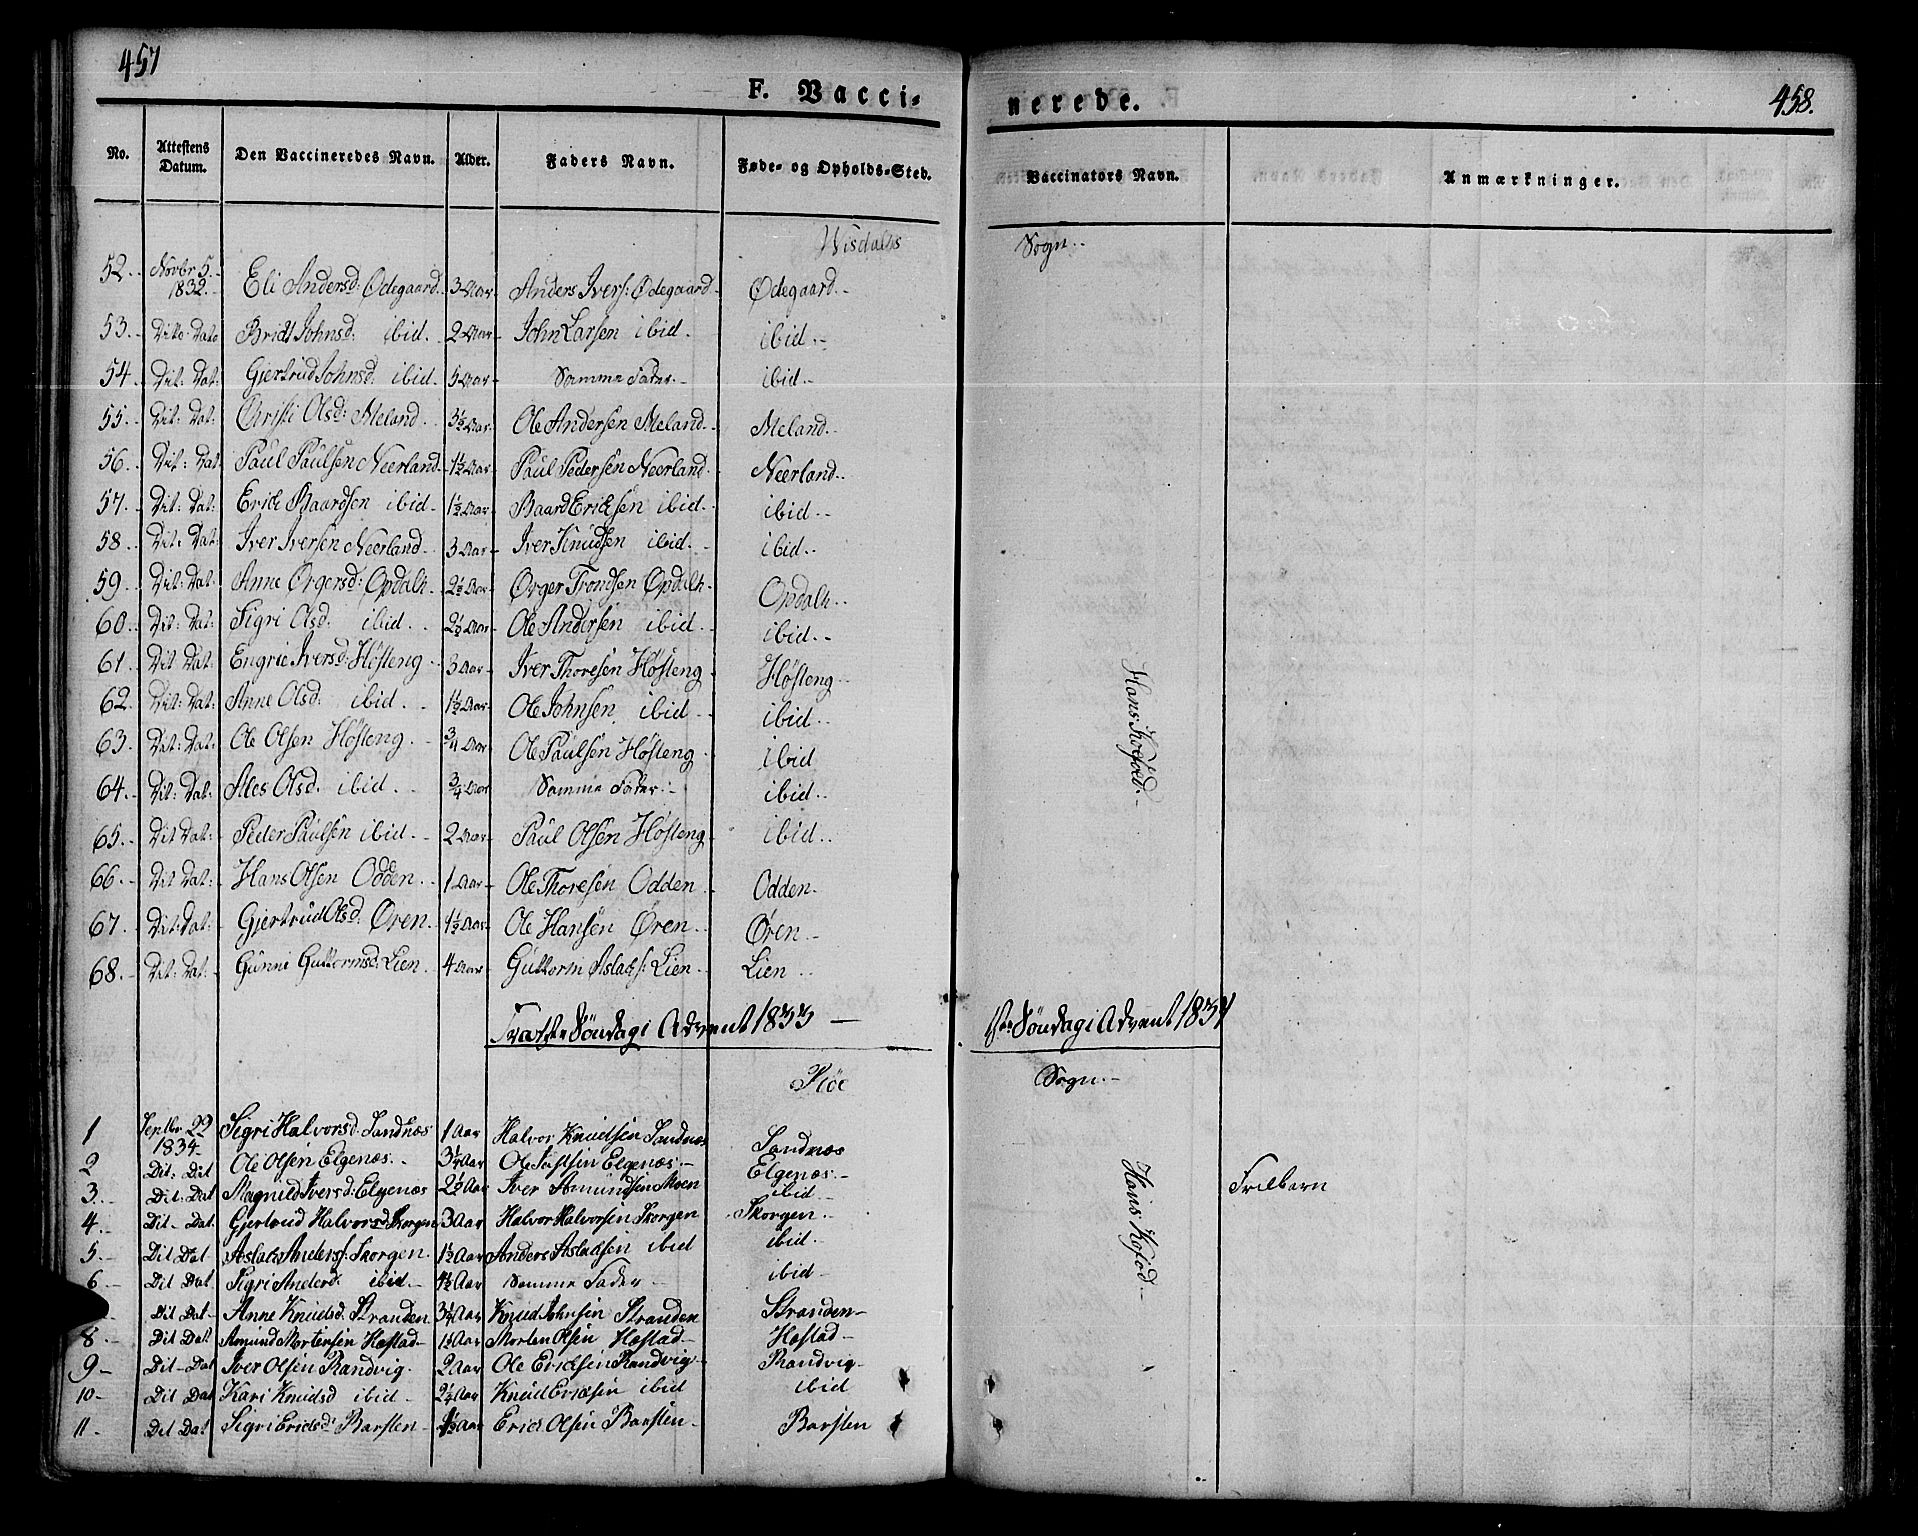 457
458.
F. Vacci-
nerede.
No. Attestens Datum. Den Vaccineredes Navn. Alder. Faders Navn. Føde- og Opholds-Sted. Vaccinators Navn. Anmærkninger.
Wisdals Sogn.
52. Novbr 5. 1832. Eli Andersd: Ødegaard. 3 Aar Anders Ivers: Ødegaard Ødegaard.
53. Dito Dato Bridt Johnsd: ibid. 2 Aar John Larsen ibid. ibid.
54. Dit: Dat: Gjertrud Johnsd: ibid. 5 Aar Samme Fader. ibid.
55. Dit: Dat: Christi Olsd: Meland. 3½ Aar. Ole Andersen Meland. Meland.
56. Dit: Dat Paul Paulsen Neerland 1½ Aar Paul Pedersen Neerland. Neerland.
57. Dit: Dat: Erick Baardsen ibid 1½ Aar Baard Ericksen ibid. ibid.
58. Dit: Dat: Iver Iversen Neerland 3 Aar Iver Knudsen ibid. ibid.
59. Dit: Dat: Anne Ørgersd: Opdahl. 2½ Aar. Ørger Trondsen Opdahl. Opdahl.
60. Dit: Dat: Sigri Olsd: ibid. 2½ Aar Ole Andersen ibid. ibid.
61. Dit Dat: Engrie Iversd: Høsteng 3 Aar Iver Thoresen Høsteng Høsteng
62. Dit: Dat: Anne Olsd: ibid. 1½ Aar Ole Johnsen ibid ibid.
63. Dat: Dat: Ole Olsen Høsteng. ¾ Aar Ole Paulsen Høsteng ibid
64. Dit: Dat: Ales Olsd. ibid. ¾ Aar Samme Fader. ibid.
65. Dit Dat: Peder Paulsen ibid. 2 Aar Paul Olsen Høsteng ibid.
66. Dit Dat: Hans Olsen Odden. 1 Aar Ole Thoresen Odden Odden.
67. Dit: Dat: Gjertrud Olsd: Øren. 1½ Aar. Ole Hansen Øren. Øren
68. Dit: Dat: Gunni Guttormsd: Lien. 4 Aar Guttorm Aslaks: Lien Lien
Hans Kofod.
Fra 1ste Søndag i Advent 1833 — 1ste Søndag i Advent 1834
Sogn.
1 Septbr 29 1834 Sigri Halvorsd: Sandnæs 1 Aar Halvor Knudsen Sandnæs Sandnæs
2 Dit: Dit Ole Olsen Elgenæs. 3¼ Aar Ole Elgenæs. Elgenæs.
3. Dit: Dat Magnild Iversd: Elgenæs 2½ Aar Iver Amundsen Moen ibid Frilbarn
4. Dit Dat. Gjertrud Halvorsd Skorgen 3 Aar Halvor Halvorsen Skorgen Skorgen.
5. Dit Dat Aslak Anders: Skorgen. 1½ Aar Anders Aslaksen ibid ibid.
6 Dit Dat. Sigri Andersd. ibid. 4½ Aar Samme Fader ibid
Dit Dat Anne Knudsd. Stranden 3¼ Aar Knud Johnsen Stranden Stranden
8. Dit Dat Amund Mortensen Hæstad 1½ Aar Morten Olsen Hæstad Hæstad
9 Dit Dat Iver Olsen Randvig. 2 Aar Ole Ericksen Randvig Randvig
10 Dit Dat Kari Knudsd ibid 2¼ Aar Knud Ericksen ibid ibid
11 Dit Dat Sigri Ericksd: Barsten 1½ Aar Erick Olsen Barsten Barsten
Hans Kofod